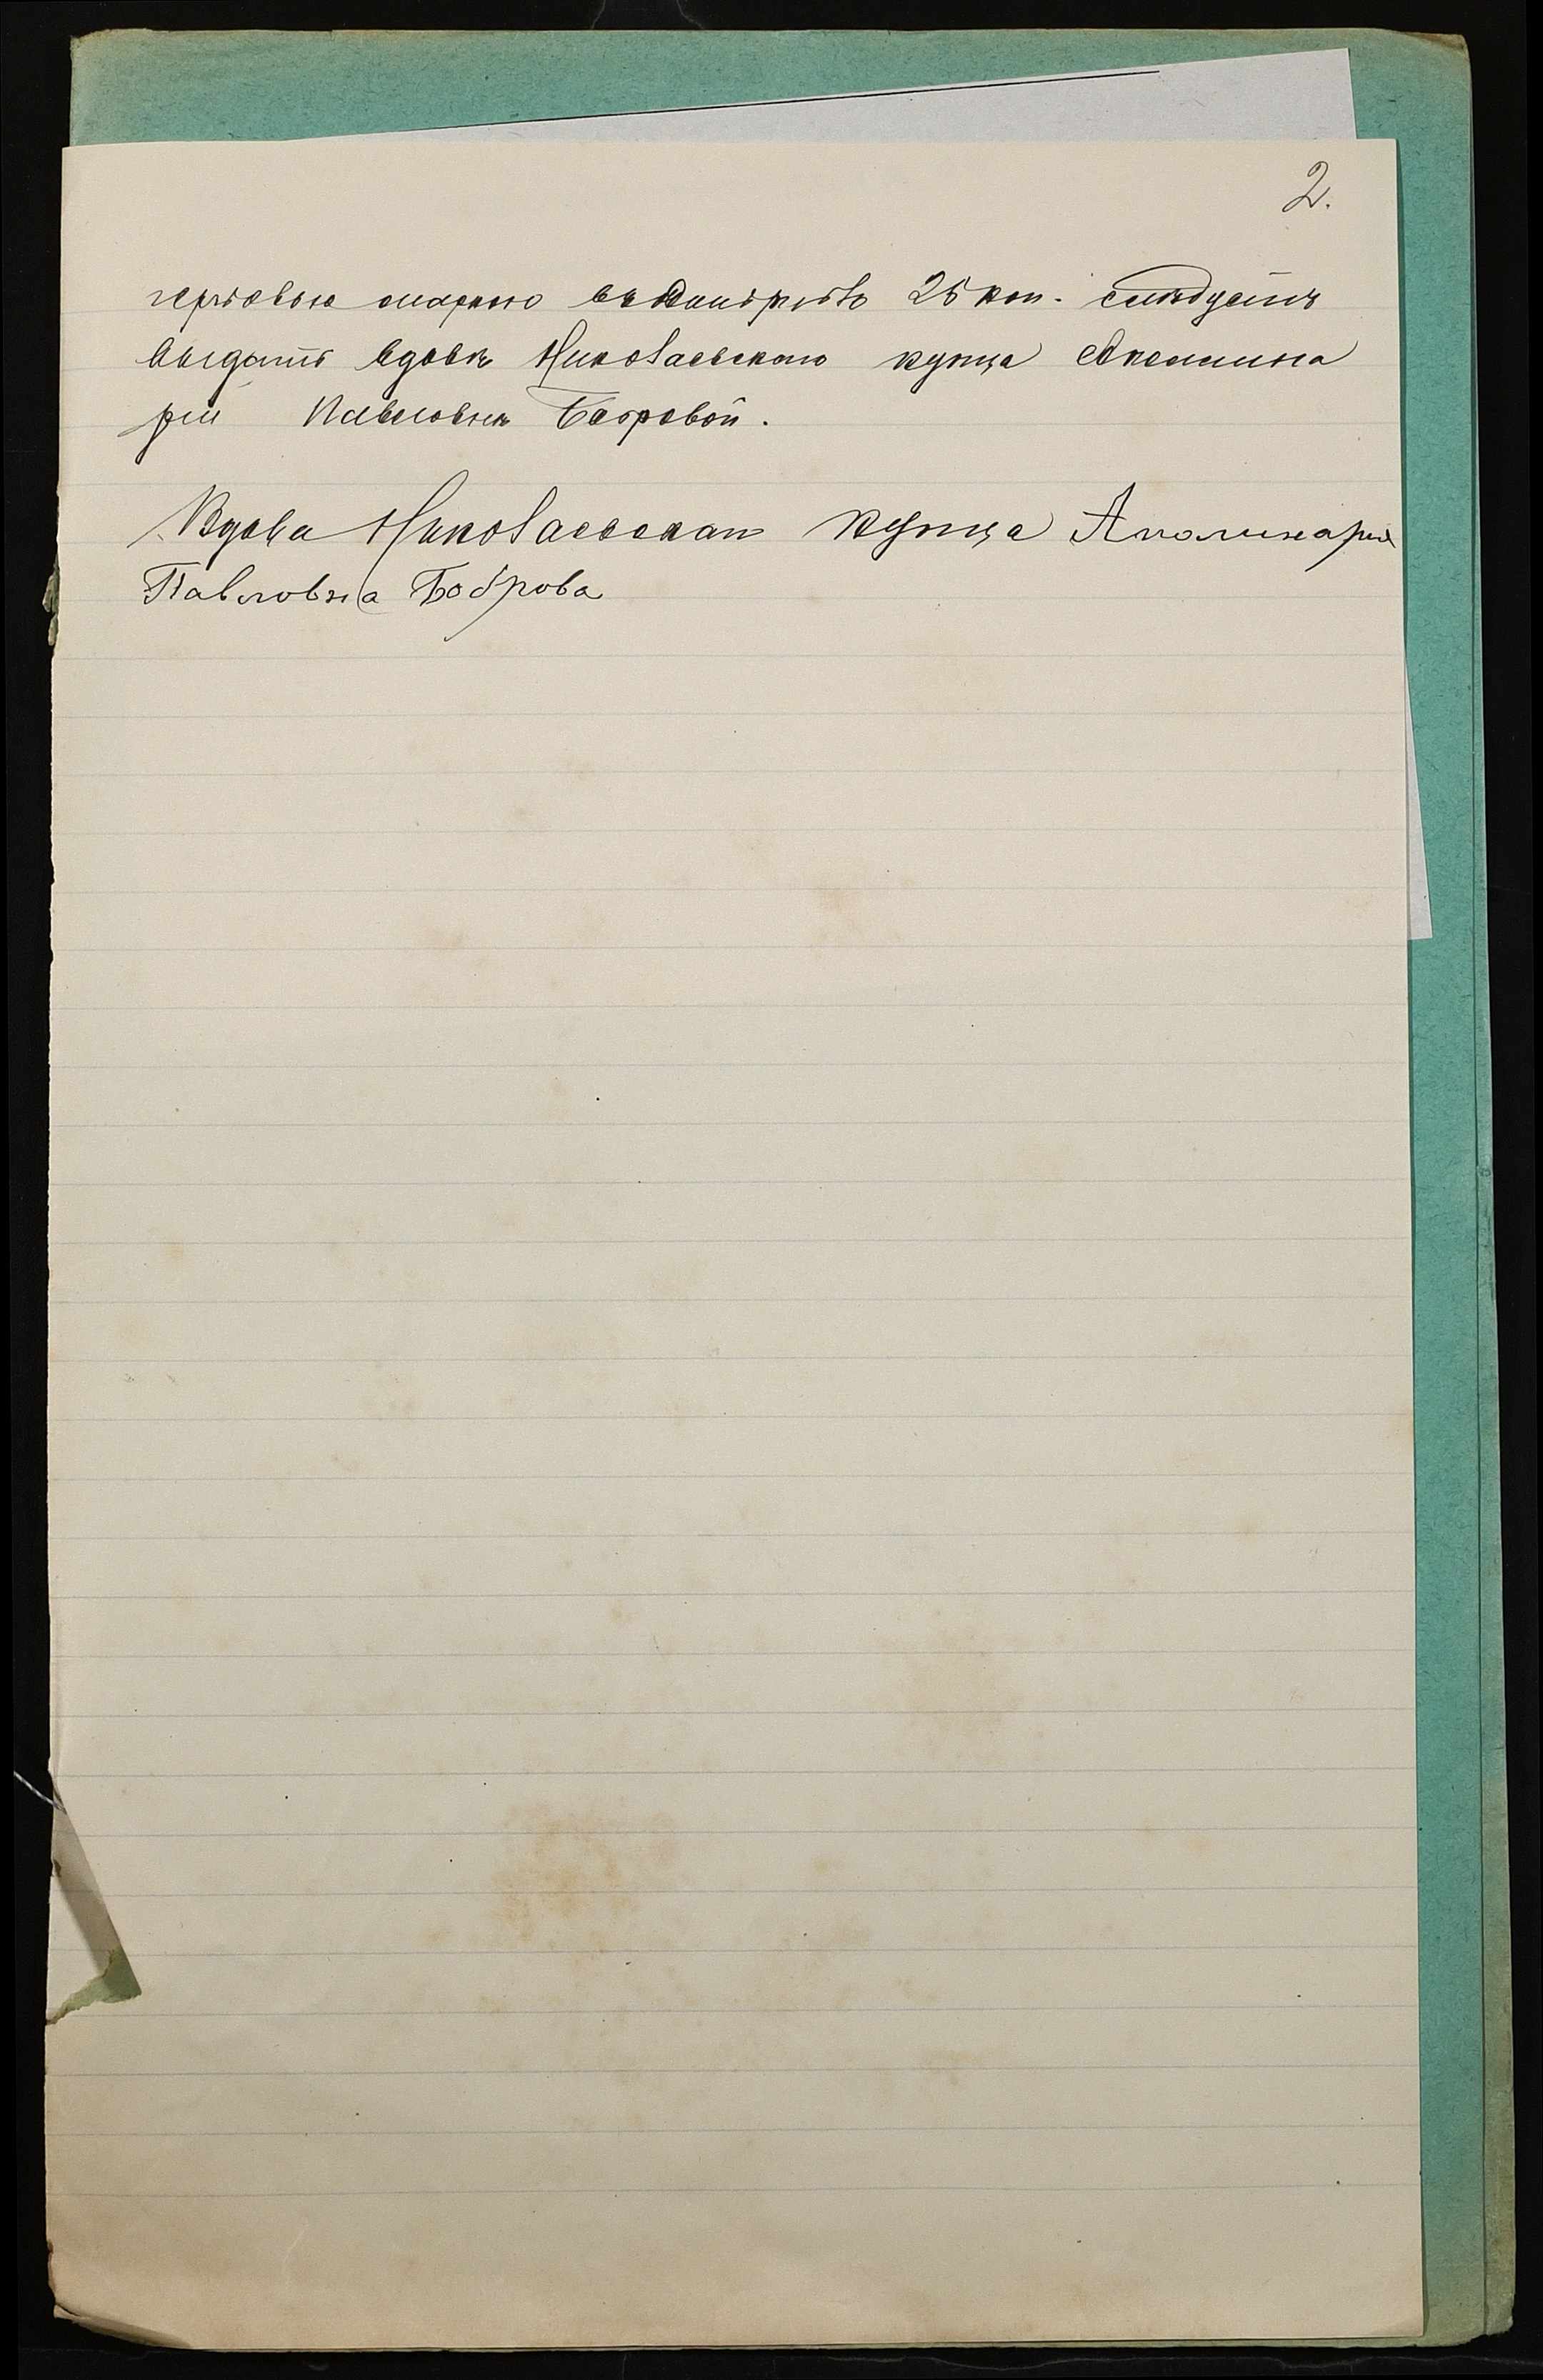 2.
гербовою маркою въ 25 коп. слѣдуетъ
выдать вдовѣ Николаевскаго купца Аполлина
ріи Павловнѣ Бобровой.
Вдова Николаевскаго купца Аполинария
Павловна Боброва